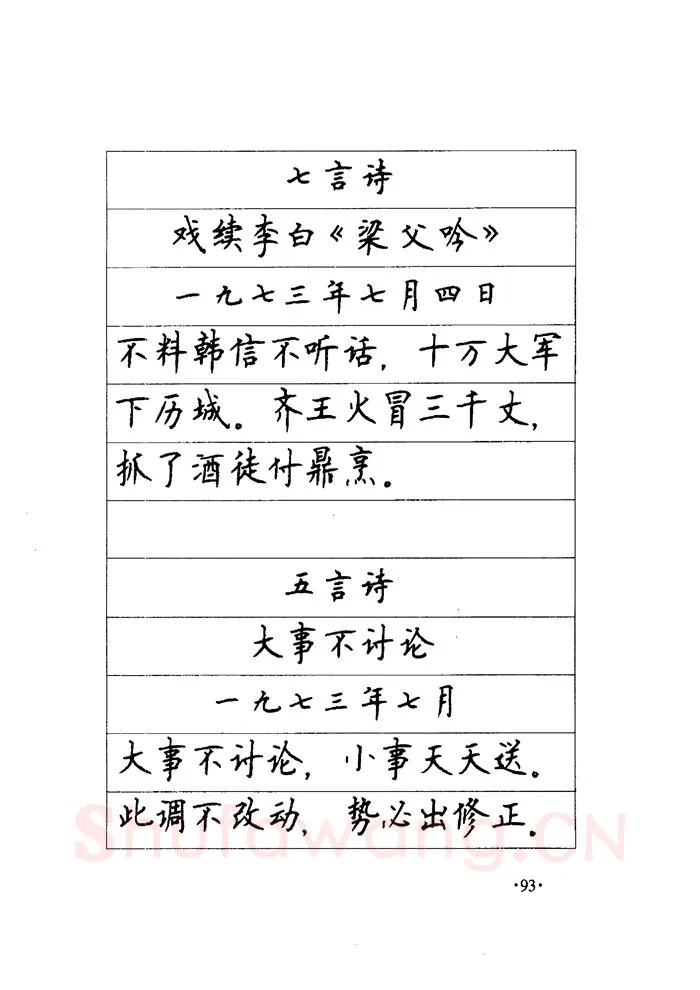 七言诗
戏续李白《梁父吟》
一九七三年七月四日
不料韩信不听话，十万大军
下历城。齐王火冒三千丈，
抓了酒徒付鼎烹。
五言诗
大事不讨论
一九七三年七月
大事不讨论，小事天天送。
此调不改动，势必出修正。
Shufawang.CN
·93·